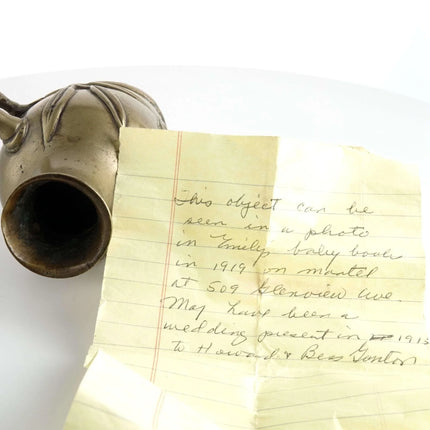 This object can be
seen in a photo
in Emily's baby book
in 1919 on mantel
at 509 Glenview Ave.
May have been a
wedding present in 1913
to Howard & Bess